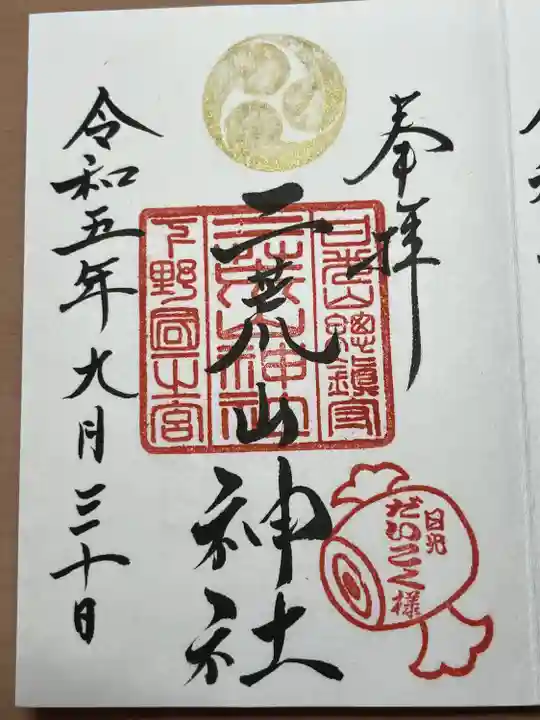 奉拝
日光山總鎮守
二荒山神社
二荒山神社
下野國一之宮
日光
だいこく様
令和五年九月三十日